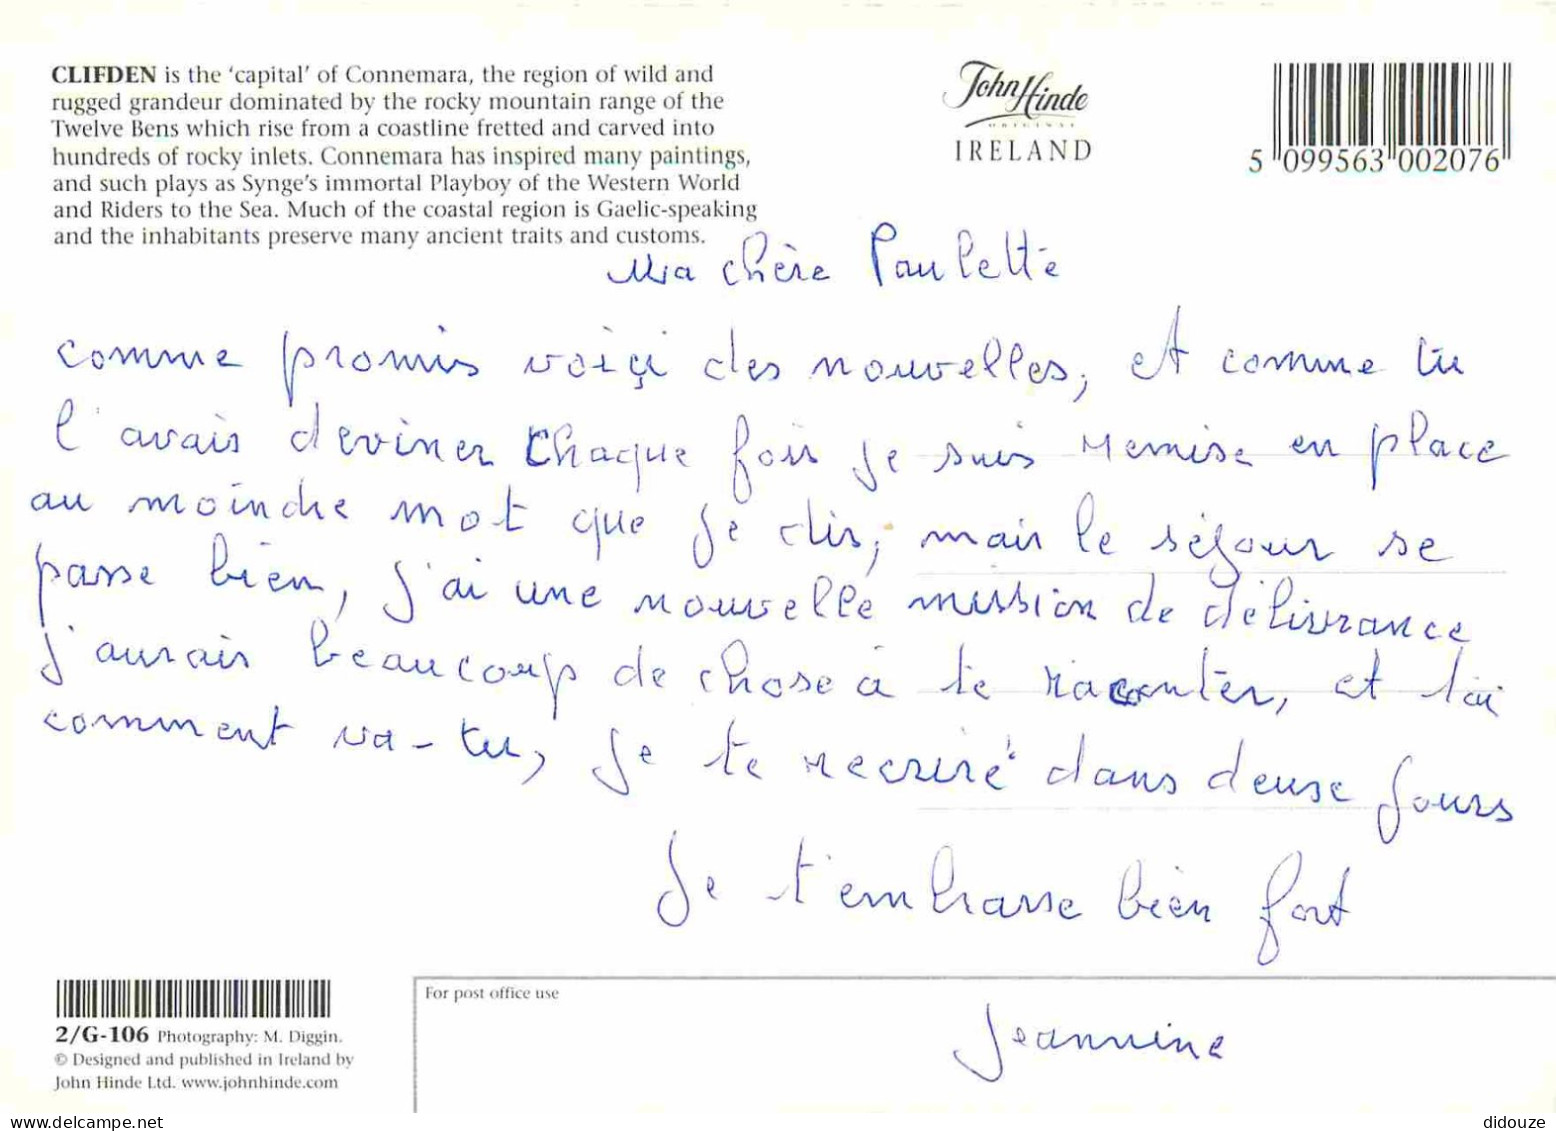 CLIFDEN is the ‘capital’ of Connemara, the region of wild and
rugged grandeur dominated by the rocky mountain range of the
Twelve Bens which rise from a coastline fretted and carved into
hundreds of rocky inlets. Connemara has inspired many paintings,
and such plays as Synge’s immortal Playboy of the Western World
and Riders to the Sea. Much of the coastal region is Gaelic-speaking
and the inhabitants preserve many ancient traits and customs.
John Hinde
ORIGINAL
IRELAND
5 099563 002076
Ma chère Paulette
comme promis voiçi des nouvelles, et comme tu
l'avais deviner chaque fois je suis remise en place
au moindre mot que je dis, mais le séjour se
passe bien, j'ai une nouvelle mission de délivrance
j'aurais beaucoup de chose à te raconter, et toi
comment va-tu, je te recriré dans deuse jours
Je t'embrasse bien fort
Jeannine
For post office use
2/G-106 Photography: M. Diggin.
© Designed and published in Ireland by
John Hinde Ltd. www.johnhinde.com
didouze